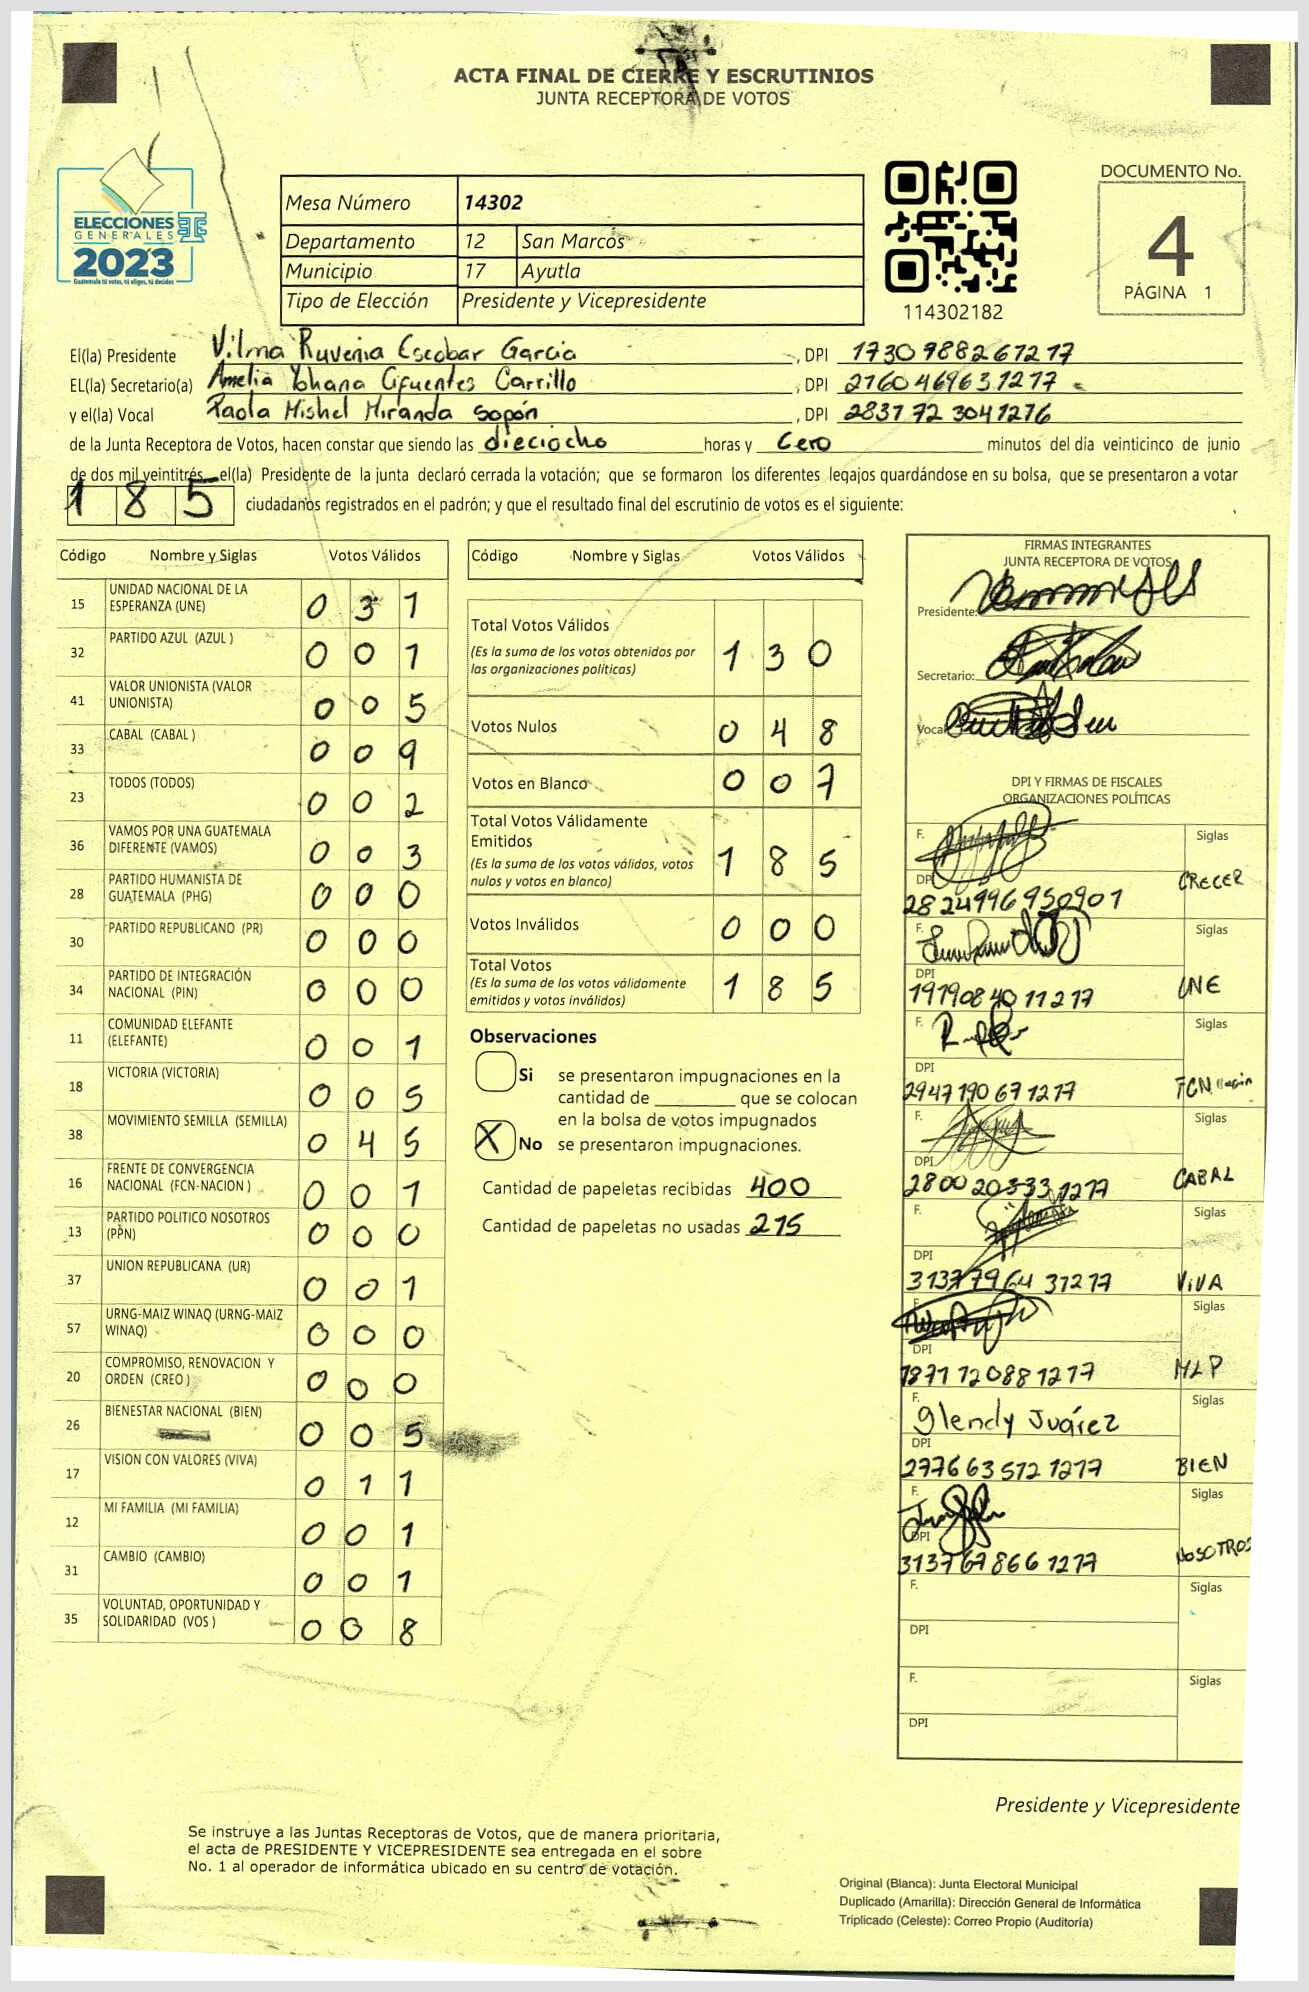 ACTA FINAL DE CIERRE Y ESCRUTINIOS
JUNTA RECEPTORA DE VOTOS
ELECCIONES
GENERALES
2023
Guatemala tú votas, tú eliges, tú decides
Mesa Número 14302
Departamento 12 San Marcos
Municipio 17 Ayutla
Tipo de Elección Presidente y Vicepresidente
114302182
DOCUMENTO No.
4
PÁGINA 1
El(la) Presidente Vilma Ruvenia Escobar Garcia, DPI 1730988261217
EL(la) Secretario(a) Amelia Yohana Cifuentes Carrillo, DPI 2160469631217
y el(la) Vocal Paola Mishel Miranda sopón, DPI 2831723041216
de la Junta Receptora de Votos, hacen constar que siendo las dieciocho horas y Cero minutos del día veinticinco de junio
de dos mil veintitrés el(la) Presidente de la junta declaró cerrada la votación; que se formaron los diferentes legajos guardándose en su bolsa, que se presentaron a votar
185 ciudadanos registrados en el padrón; y que el resultado final del escrutinio de votos es el siguiente:
Código Nombre y Siglas Votos Válidos
15 UNIDAD NACIONAL DE LA ESPERANZA (UNE) 031
32 PARTIDO AZUL (AZUL ) 001
41 VALOR UNIONISTA (VALOR UNIONISTA) 005
33 CABAL (CABAL ) 009
23 TODOS (TODOS) 002
36 VAMOS POR UNA GUATEMALA DIFERENTE (VAMOS) 003
28 PARTIDO HUMANISTA DE GUATEMALA (PHG) 000
30 PARTIDO REPUBLICANO (PR) 000
34 PARTIDO DE INTEGRACIÓN NACIONAL (PIN) 000
11 COMUNIDAD ELEFANTE (ELEFANTE) 001
18 VICTORIA (VICTORIA) 005
38 MOVIMIENTO SEMILLA (SEMILLA) 045
16 FRENTE DE CONVERGENCIA NACIONAL (FCN-NACION ) 001
13 PARTIDO POLITICO NOSOTROS (PPN) 000
37 UNION REPUBLICANA (UR) 001
57 URNG-MAIZ WINAQ (URNG-MAIZ WINAQ) 000
20 COMPROMISO, RENOVACION Y ORDEN (CREO ) 000
26 BIENESTAR NACIONAL (BIEN) 005
17 VISION CON VALORES (VIVA) 011
12 MI FAMILIA (MI FAMILIA) 001
31 CAMBIO (CAMBIO) 001
35 VOLUNTAD, OPORTUNIDAD Y SOLIDARIDAD (VOS ) 008
Código Nombre y Siglas Votos Válidos
Total Votos Válidos 130
(Es la suma de los votos obtenidos por
las organizaciones políticas)
Votos Nulos 048
Votos en Blanco 007
Total Votos Válidamente
Emitidos 185
(Es la suma de los votos válidos, votos
nulos y votos en blanco)
Votos Inválidos 000
Total Votos 185
(Es la suma de los votos válidamente
emitidos y votos inválidos)
Observaciones
Si se presentaron impugnaciones en la
cantidad de ________ que se colocan
en la bolsa de votos impugnados
X No se presentaron impugnaciones.
Cantidad de papeletas recibidas 400
Cantidad de papeletas no usadas 215
FIRMAS INTEGRANTES
JUNTA RECEPTORA DE VOTOS
Presidente:
Secretario:
Vocal
DPI Y FIRMAS DE FISCALES
ORGANIZACIONES POLÍTICAS
F. Siglas
DPI 2824996950901 CRECER
F. Siglas
DPI 1919084011217 UNE
F. Siglas
DPI 2947190671217 FCN
F. Siglas
DPI 2800203331217 CABAL
F. Siglas
DPI 3137796431217 ViVA
F. Siglas
DPI 1871120881217 MLP
F. glendy Juárez Siglas
DPI 2776635121217 BIEN
F. Siglas
DPI 3137678661217 NOSOTROS
F. Siglas
DPI
F. Siglas
DPI
Presidente y Vicepresidente
Se instruye a las Juntas Receptoras de Votos, que de manera prioritaria,
el acta de PRESIDENTE Y VICEPRESIDENTE sea entregada en el sobre
No. 1 al operador de informática ubicado en su centro de votación.
Original (Blanca): Junta Electoral Municipal
Duplicado (Amarilla): Dirección General de Informática
Triplicado (Celeste): Correo Propio (Auditoría)